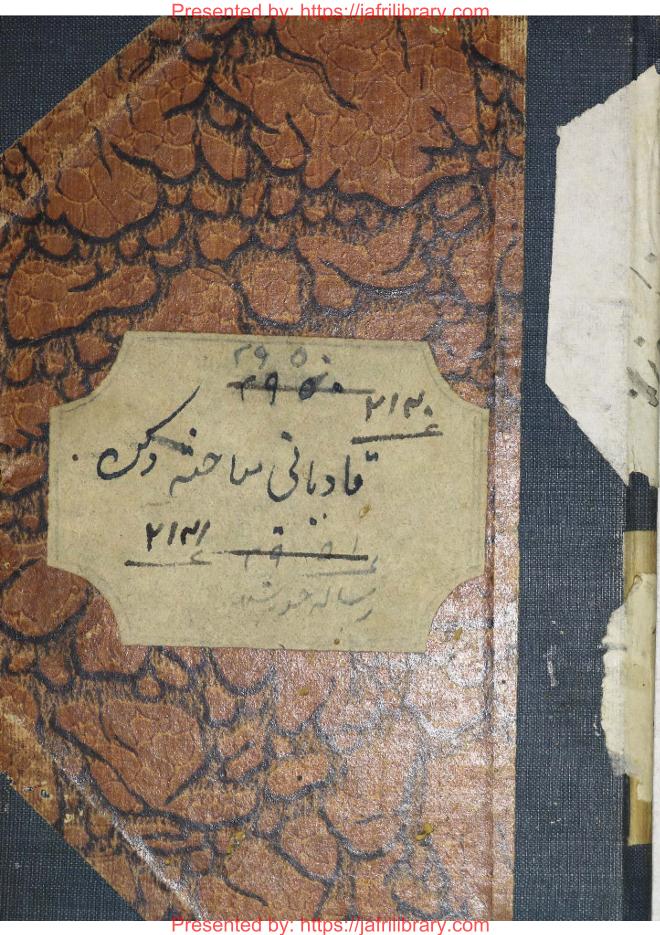 Presented by: https://jafrilibrary.com
۲۹۵۰
۲۹۵۰
۲۱۳۰
قادیانی مباحثہ دکن
۲۱۳۱
رسالہ
Presented by: https://jafrilibrary.com